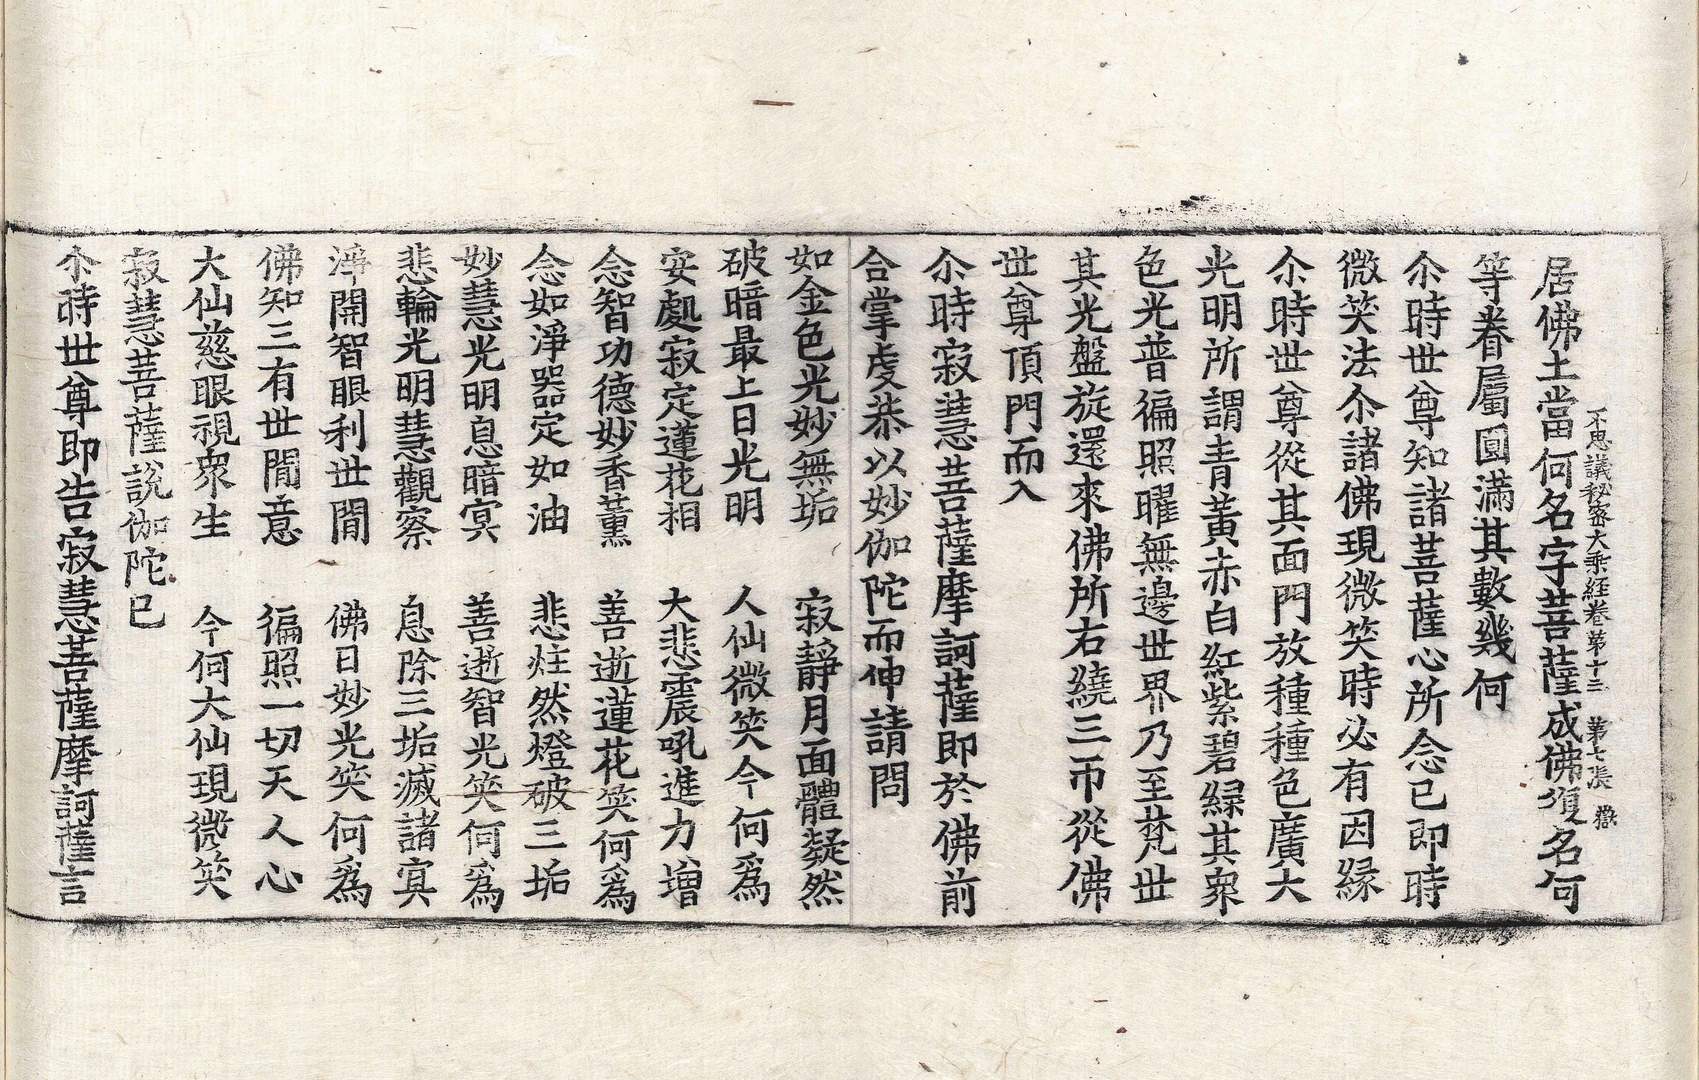 不思議秘密大乘經卷第十三 第七張 嶽
居佛土當何名字菩薩成佛復名何
等眷屬圓滿其數幾何
尒時世尊知諸菩薩心所念已即時
微笑法尒諸佛現微笑時必有因緣
尒時世尊從其面門放種種色廣大
光明所謂青黃赤白紅紫碧綠其衆
色光普徧照曜無邊世界乃至梵世
其光盤旋還來佛所右繞三帀從佛
世尊頂門而入
尒時寂慧菩薩摩訶薩即於佛前
合掌虔恭以妙伽陀而伸請問
如金色光妙無垢 寂靜月面體凝然
破暗最上日光明 人仙微笑今何爲
安處寂定蓮花相 大悲震吼進力增
念智功德妙香薰 善逝蓮花笑何爲
念如淨器定如油 悲炷然燈破三垢
妙慧光明息暗冥 善逝智光笑何爲
悲輪光明慧觀察 息除三垢滅諸冥
淨開智眼利世間 佛日妙光笑何爲
佛知三有世間意 徧照一切天人心
大仙慈眼視衆生 今何大仙現微笑
寂慧菩薩說伽陀已
尒時世尊即告寂慧菩薩摩訶薩言